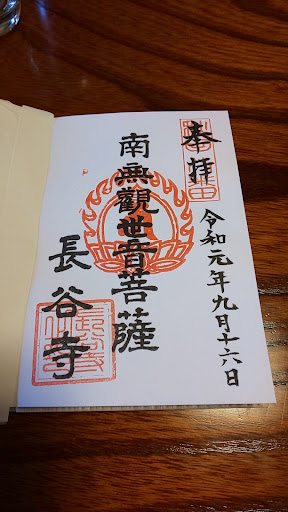 奉拝
令和元年九月十六日
南無觀世音菩薩
長谷寺